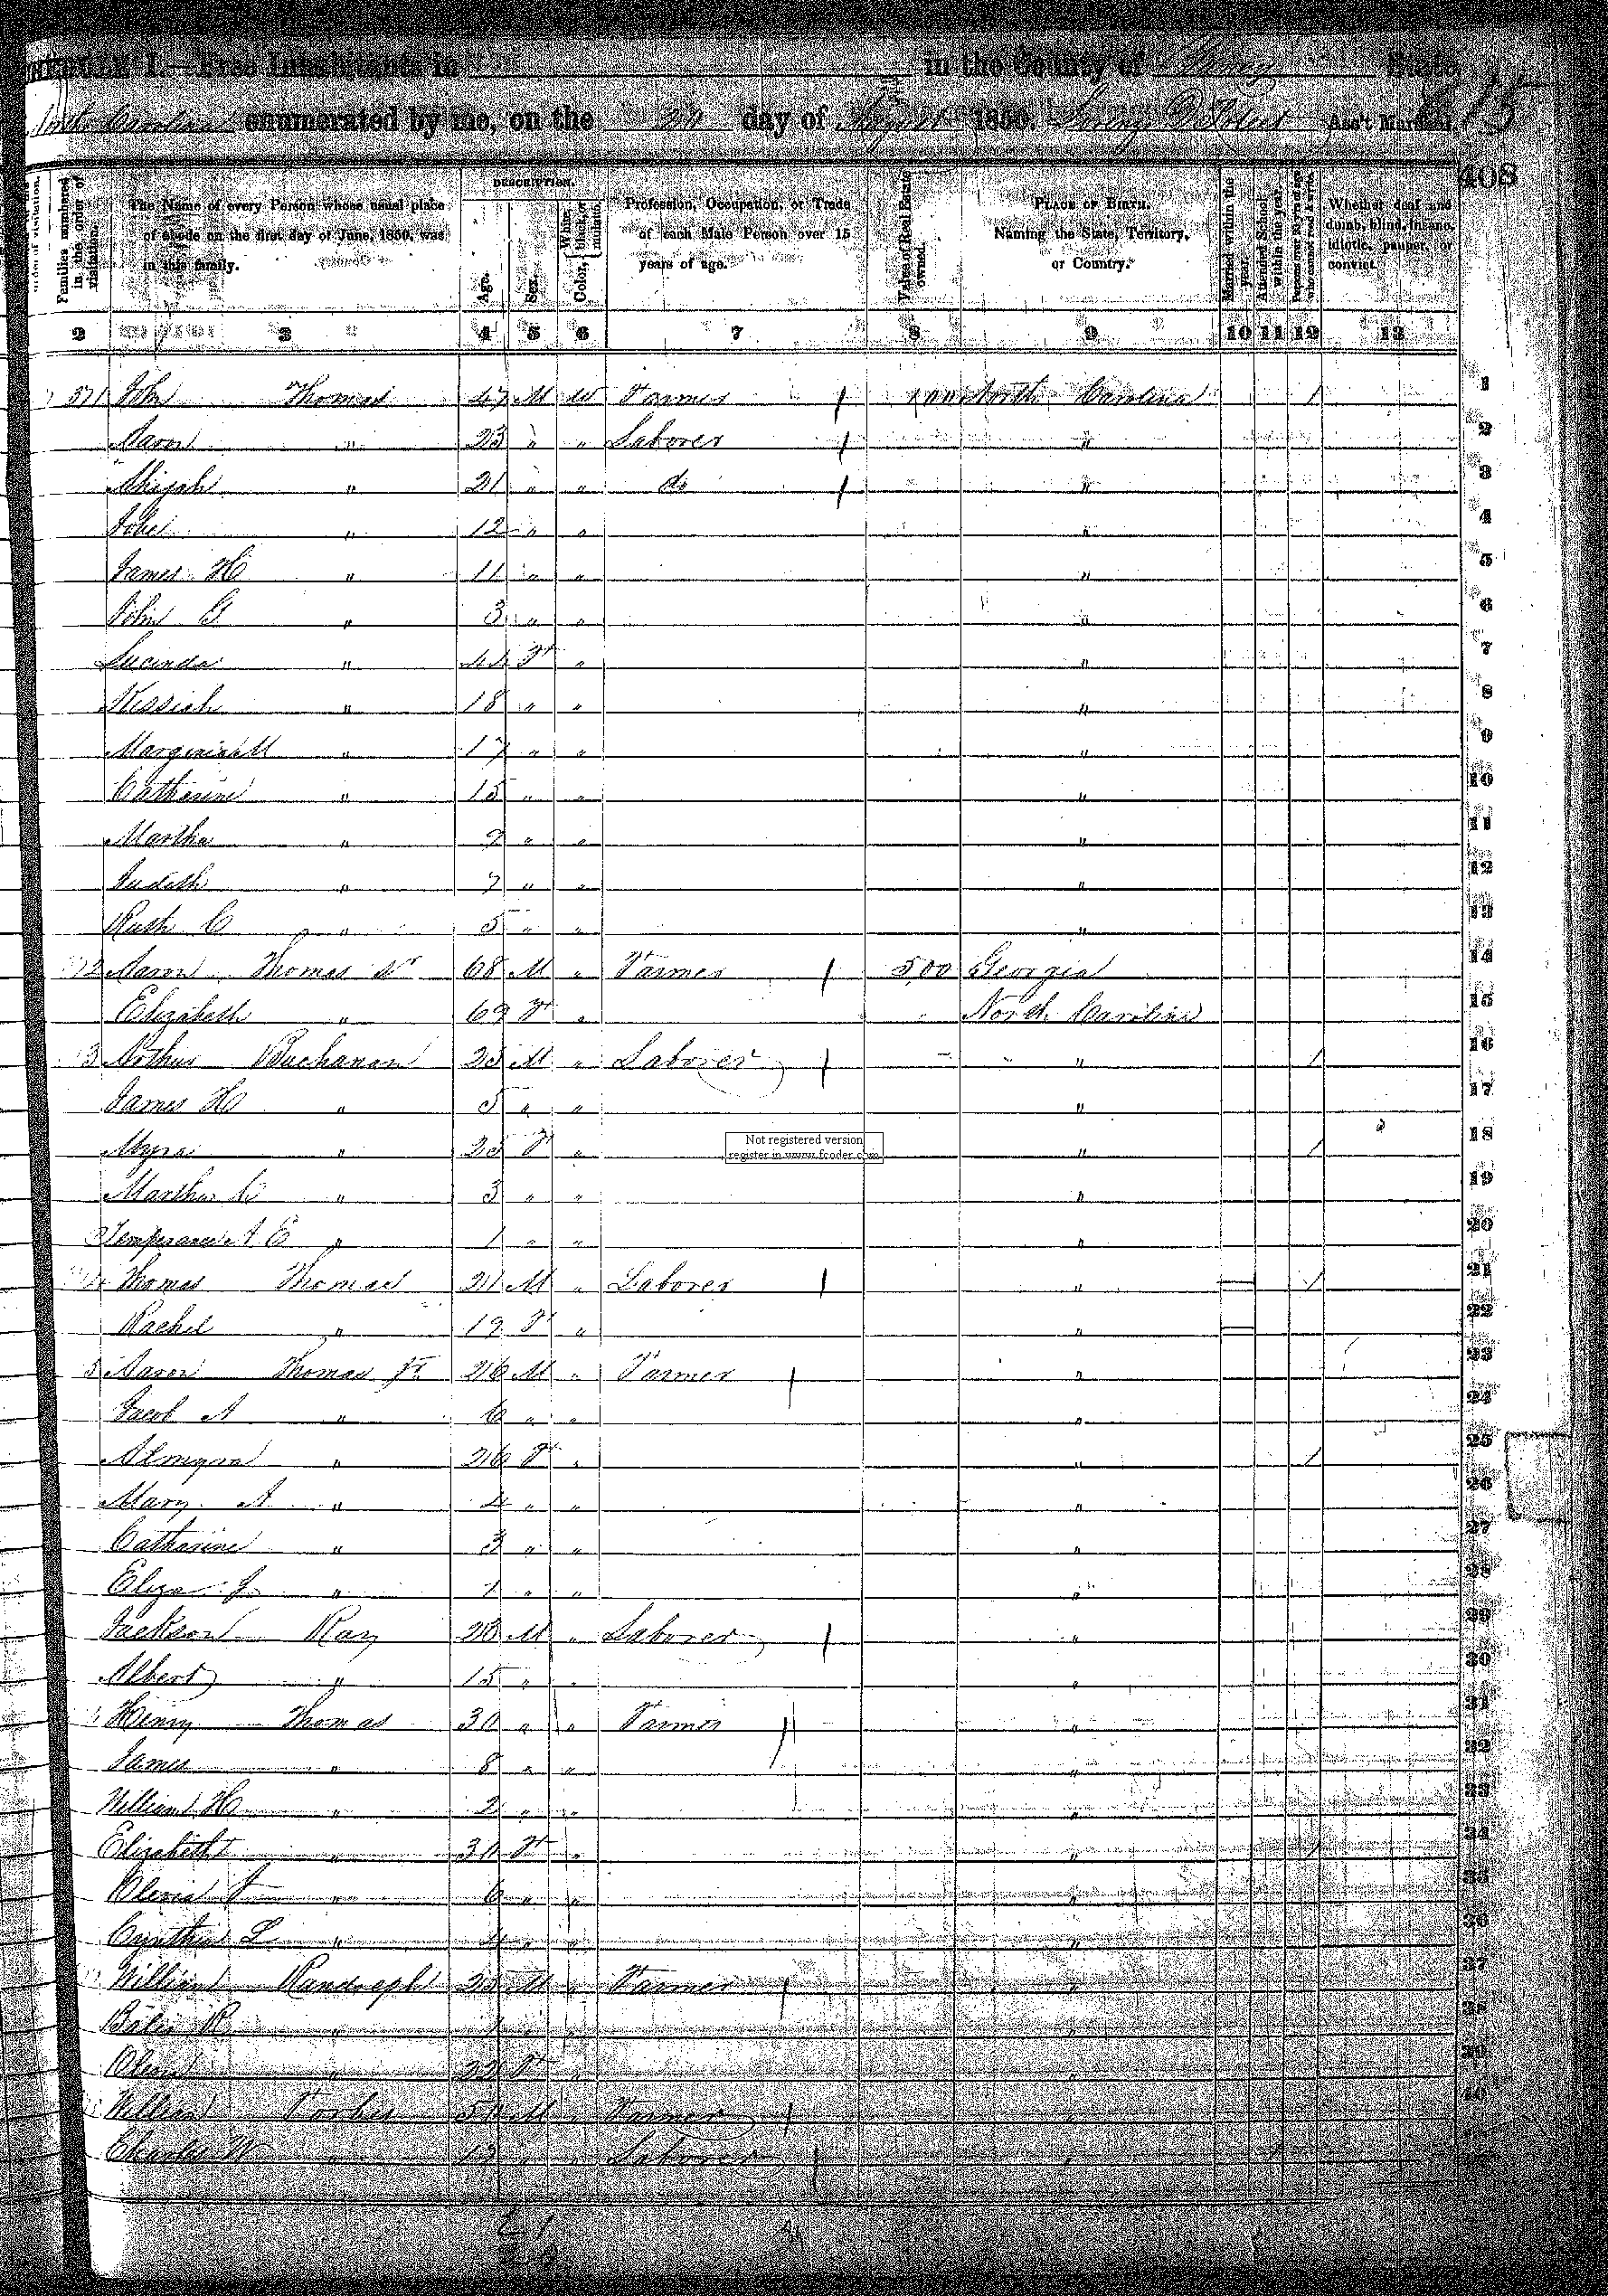 I.—Free Inhabitants in in the County of Yancy State
North Carolina enumerated by me, on the day of August 1850. Ass't Marshal.
408
DESCRIPTION.
Families numbered in the order of visitation.
The Name of every Person whose usual place of abode on the first day of June, 1850, was in this family.
Age.
Sex.
Color, White, black, or mulatto.
Profession, Occupation, or Trade of each Male Person over 15 years of age.
Value of Real Estate owned.
PLACE OF BIRTH. Naming the State, Territory, or Country.
Married within the year.
Attended School within the year.
Persons over 20 y'rs of age who cannot read & write.
Whether deaf and dumb, blind, insane, idiotic, pauper, or convict.
2 3 4 5 6 7 8 9 10 11 12 13
571 John Thomas 47 M W Farmer North Carolina / 1
Aaron " 23 " " Laborer " 2
Abijah " 21 " " do " 3
" 12 " " " 4
James H " 11 " " " 5
John G " 3 " " " 6
Lucinda " 44 F " " 7
Kissiah " 18 " " " 8
M " 17 " " " 9
Catharine " 15 " " " 10
Martha " 9 " " " 11
Judeth " 7 " " " 12
Ruth C " 5 " " " 13
Aaron Thomas Sr 68 M " Farmer 500 Georgia 14
Elizabeth " 69 F " North Carolina 15
3 Arthur Buchanan 25 M " Laborer " / 16
James H " 5 " " " 17
Myra " 25 F " " / 18
Not registered version
register in www.fcoder.com
Martha C " 3 " " " 19
Temperance A. E " 1 " " " 20
Thomas Thomas 21 M " Laborer " / 21
Rachel " 19 F " " 22
5 Aaron Thomas Jr 26 M " Farmer " 23
Jacob A " 6 " " " 24
Almyra " 26 F " " / 25
Mary A " 4 " " " 26
Catharine " 3 " " " 27
Eliza J. " 1 " " " 28
Jackson Ray 23 M " Laborer " 29
Albert " 15 " " " 30
Henry Thomas 30 " " Farmer " 31
James " 8 " " " 32
William H " 2 " " " 33
Elizabeth " 30 F " " / 34
" 6 " " " 35
Cynthia L " 4 " " " 36
William Randolph 25 M " Farmer " 37
R " 1 " " " 38
" 22 F " " 39
William Forbes 50 M " Farmer " 40
Charles W " " " Laborer "